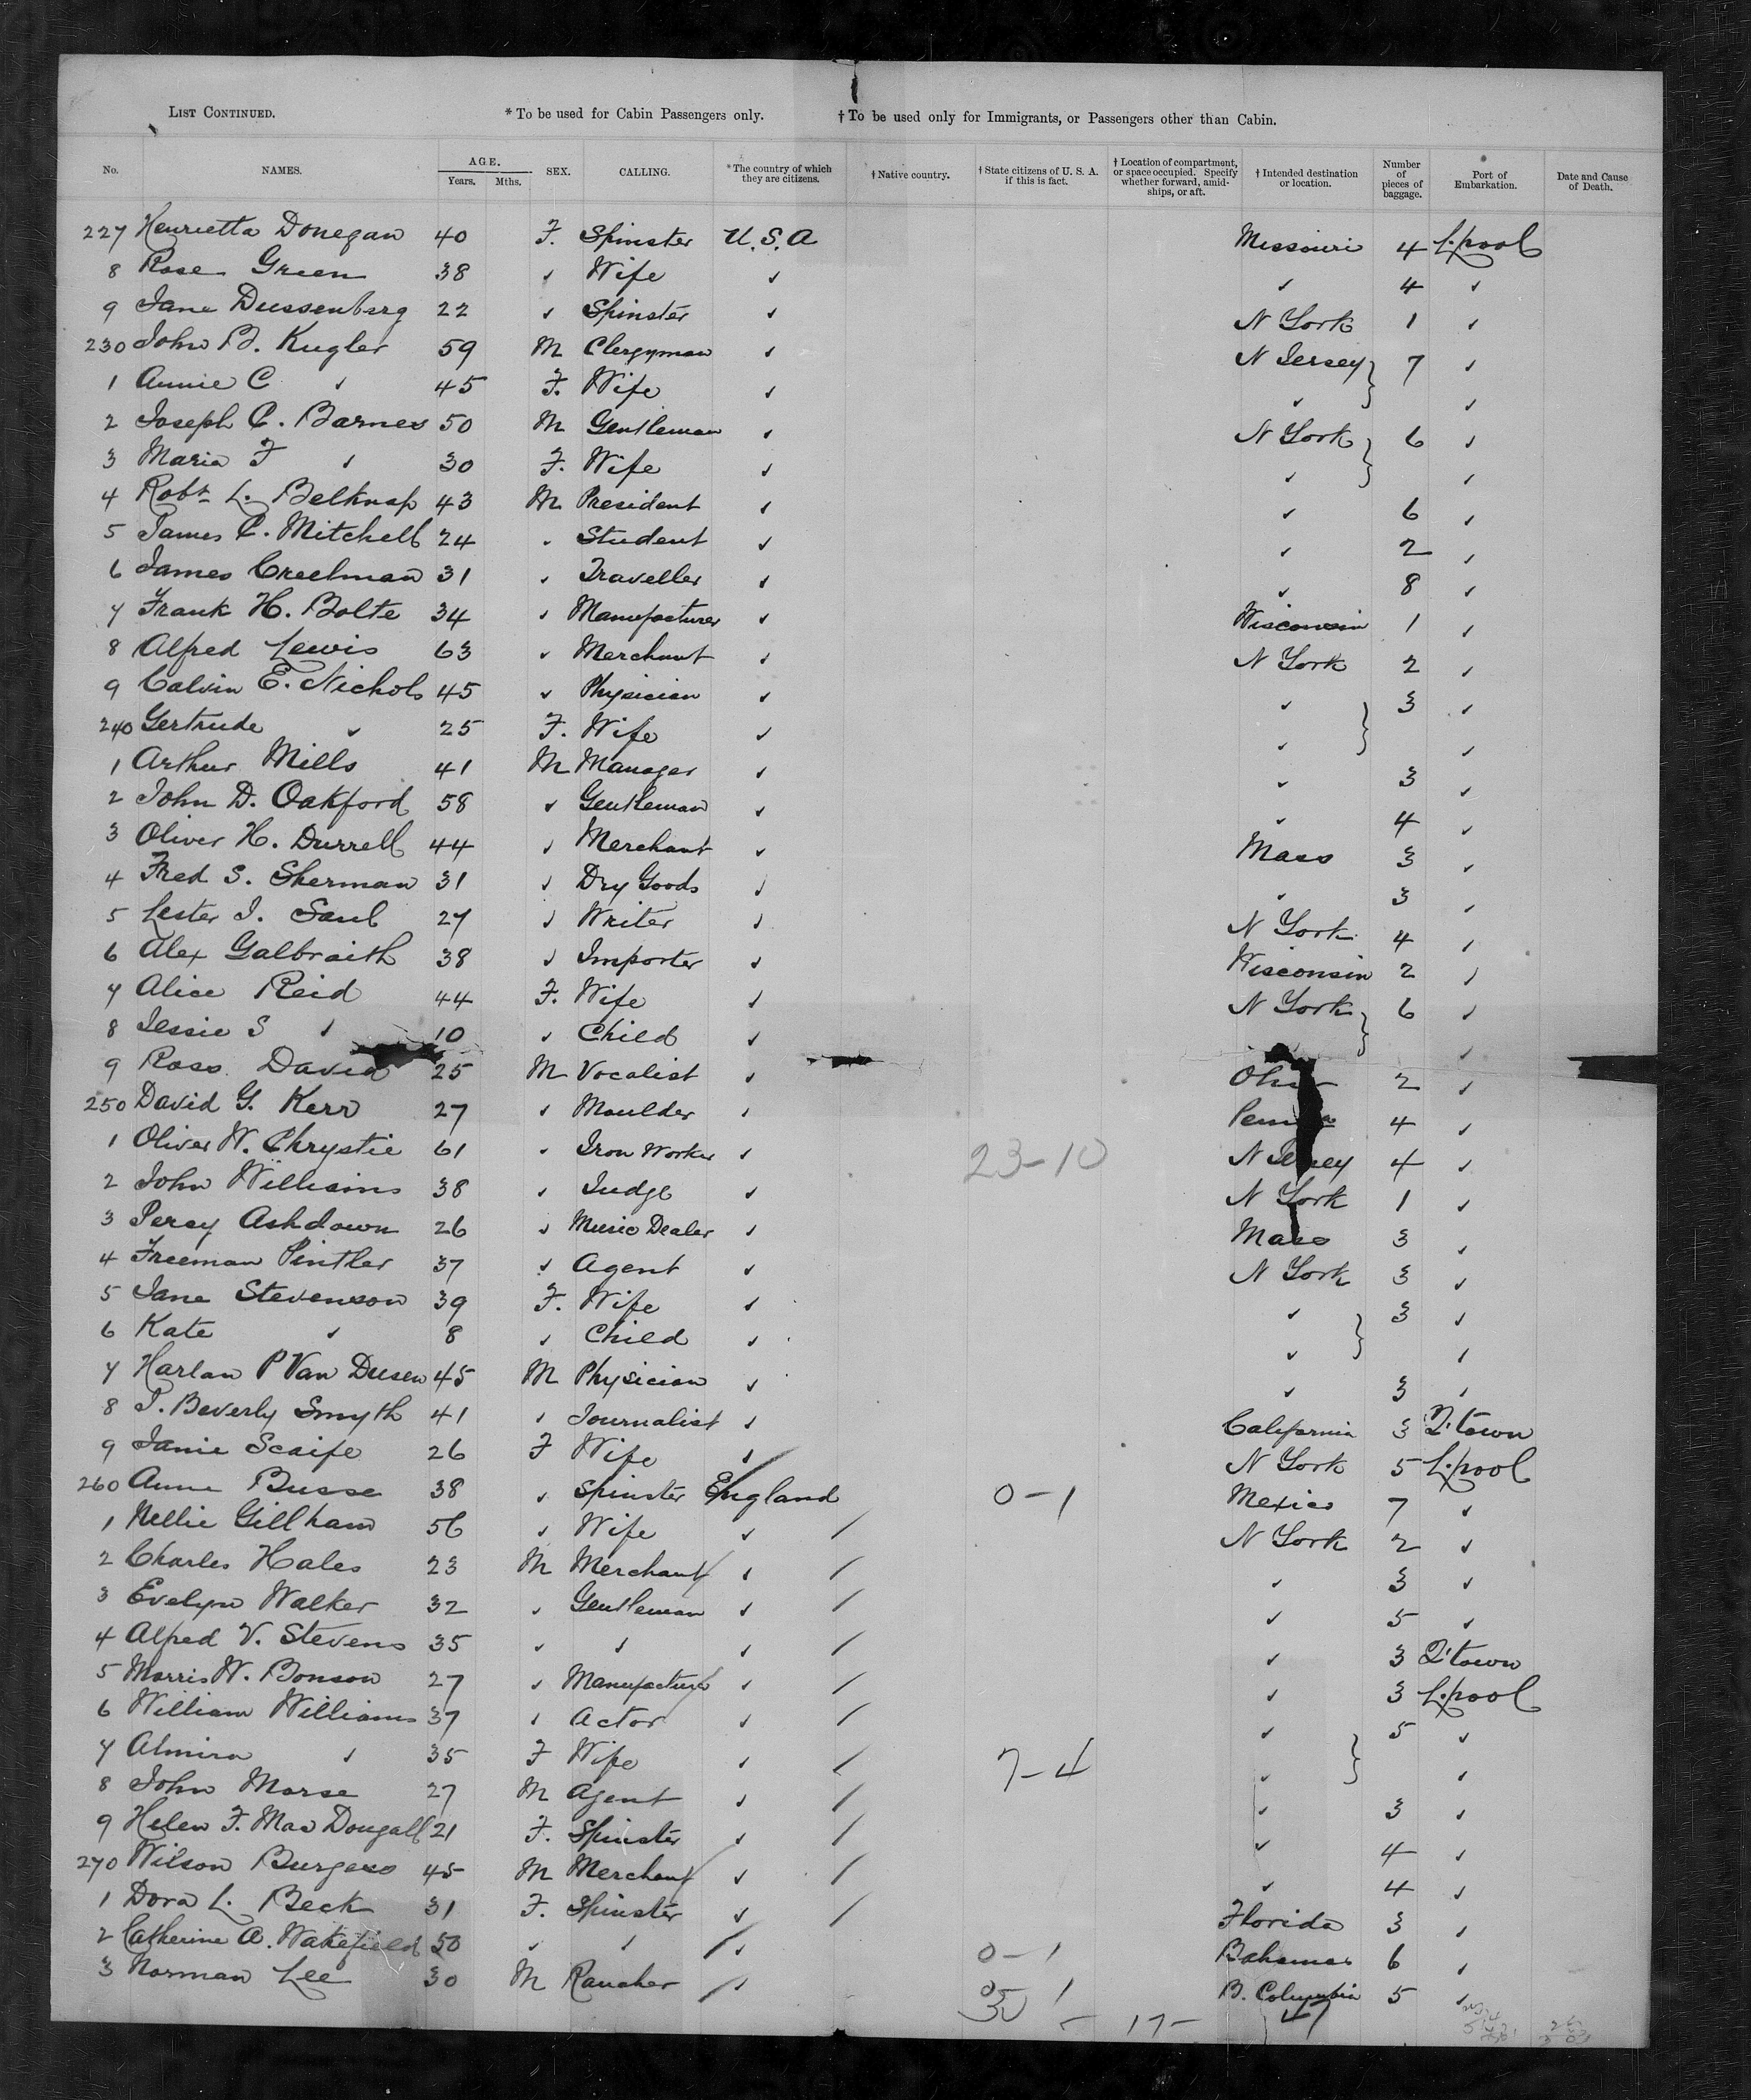 LIST CONTINUED. * To be used for Cabin Passengers only. † To be used only for Immigrants, or Passengers other than Cabin.
No. NAMES. AGE. Years. Mths. SEX. CALLING. *The country of which they are citizens. † Native country. † State citizens of U. S. A. if this is fact. † Location of compartment, or space occupied. Specify whether forward, amidships, or aft. † Intended destination or location. Number of pieces of baggage. Port of Embarkation. Date and Cause of Death.
227 Henrietta Donegan 40 F. Spinster U.S.A Missouri 4 L.pool
8 Rose Green 38 ✓ Wife ✓ ✓ 4 ✓
9 Jane Dussenberg 22 ✓ Spinster ✓ N York 1 ✓
230 John B. Kugler 59 M Clergyman ✓ N Jersey 7 ✓
1 Annie C ✓ 45 F. Wife ✓ ✓ ✓
2 Joseph C. Barnes 50 M Gentleman ✓ N York 6 ✓
3 Maria F ✓ 30 F. Wife ✓ ✓ ✓
4 Robt L. Belknap 43 M President ✓ ✓ 6 ✓
5 James C. Mitchell 24 ✓ Student ✓ ✓ 2 ✓
6 James Creelman 31 ✓ Traveller ✓ ✓ 8 ✓
7 Frank H. Bolte 34 ✓ Manufacturer ✓ Wisconsin 1 ✓
8 Alfred Lewis 63 ✓ Merchant ✓ N York 2 ✓
9 Calvin E. Nichols 45 ✓ Physician ✓ ✓ 3 ✓
240 Gertrude ✓ 25 F. Wife ✓ ✓ ✓
1 Arthur Mills 41 M Manager ✓ ✓ 3 ✓
2 John D. Oakford 58 ✓ Gentleman ✓ ✓ 4 ✓
3 Oliver H. Durrell 44 ✓ Merchant ✓ Mass 3 ✓
4 Fred S. Sherman 31 ✓ Dry Goods ✓ ✓ 3 ✓
5 Lester J. Saul 27 ✓ Writer ✓ N York 4 ✓
6 Alex Galbraith 38 ✓ Importer ✓ Wisconsin 2 ✓
7 Alice Reid 44 F. Wife ✓ N York 6 ✓
8 Jessie S ✓ 10 ✓ Child ✓ ✓
9 Ross David 25 M Vocalist ✓ Ohio 2 ✓
250 David G. Kerr 27 ✓ Moulder ✓ 4 ✓
1 Oliver W. Chrystie 61 ✓ Iron Worker ✓ 23-10 N Jersey 4 ✓
2 John Williams 38 ✓ Judge ✓ N York 1 ✓
3 Percy Ashdown 26 ✓ Music Dealer ✓ Mass 3 ✓
4 Freeman Pintler 37 ✓ Agent ✓ N York 3 ✓
5 Jane Stevenson 39 F. Wife ✓ ✓ 3 ✓
6 Kate ✓ 8 ✓ Child ✓ ✓ ✓
7 Harlan P Van Dusen 45 M Physician ✓ ✓ 3 ✓
8 P. Beverly Smyth 41 ✓ Journalist ✓ California 3 Q'town
9 Janie Scaife 26 F Wife ✓ N York 5 L.pool
260 Anne Busse 38 ✓ Spinster England 0-1 Mexico 7 ✓
1 Nellie Gillham 56 ✓ Wife ✓ N York 2 ✓
2 Charles Hales 23 M Merchant ✓ ✓ 3 ✓
3 Evelyn Walker 32 ✓ Gentleman ✓ ✓ 5 ✓
4 Alfred V. Stevens 35 ✓ ✓ ✓ ✓ 3 Q'town
5 Morris W. Bonson 27 ✓ Manufacturer ✓ ✓ 3 L.pool
6 William Williams 37 ✓ Actor ✓ ✓ 5 ✓
7 Almira ✓ 35 F Wife ✓ 7-4 ✓ ✓
8 John Morse 27 M Agent ✓ ✓ 3 ✓
9 Helen F. MacDougall 21 F. Spinster ✓ ✓ 4 ✓
270 Wilson Burgess 45 M Merchant ✓ ✓ 4 ✓
1 Dora L. Beck 31 F. Spinster ✓ Florida 3 ✓
2 Catherine A. Wakefield 50 ✓ ✓ ✓ 0-1 Bahamas 6 ✓
3 Norman Lee 30 M Rancher ✓ B. Columbia 5 ✓
17- 47